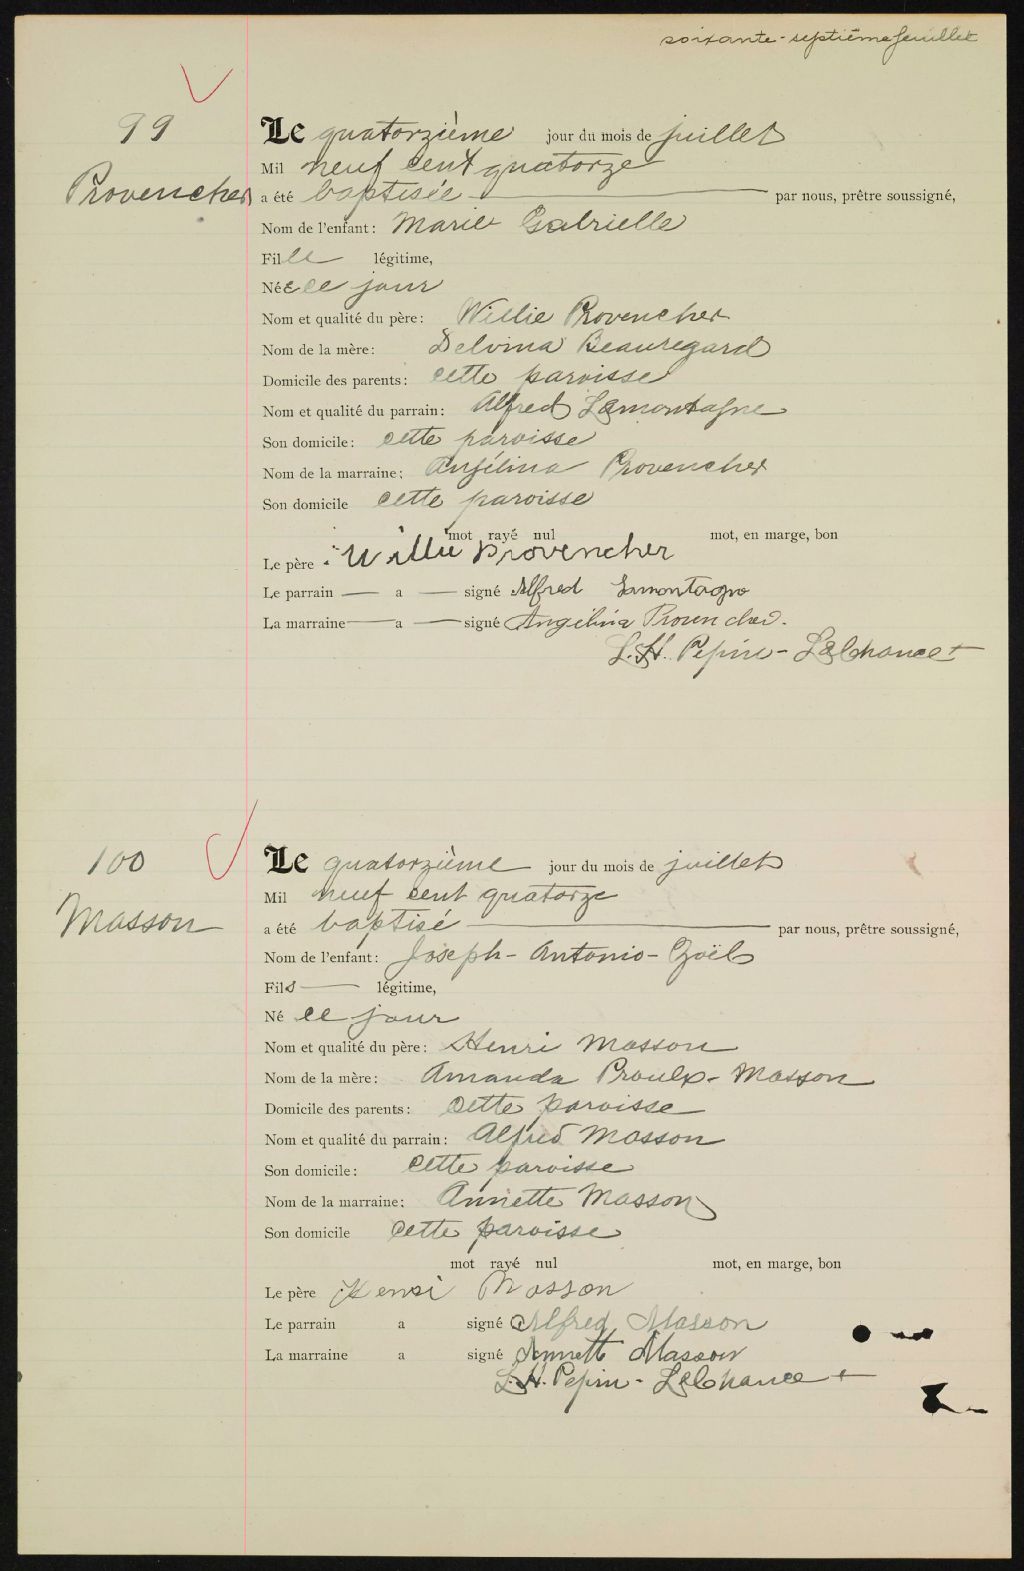 soixante-septième feuillet
99
Provencher
Le quatorzième jour du mois de juillet
Mil neuf cent quatorze
a été baptisée par nous, prêtre soussigné,
Nom de l'enfant: Marie Gabrielle
Fille légitime,
Née ce jour
Nom et qualité du père: Willie Provencher
Nom de la mère: Delvina Beauregard
Domicile des parents: cette paroisse
Nom et qualité du parrain: Alfred Lamontagne
Son domicile: cette paroisse
Nom de la marraine: Angélina Provencher
Son domicile cette paroisse
mot rayé nul mot, en marge, bon
Le père: Willie Provencher
Le parrain — a — signé Alfred Lamontagne
La marraine — a — signé Angelina Provencher.
L.H. Pepin-LaChance
100
Masson
Le quatorzième jour du mois de juillet
Mil neuf cent quatorze
a été baptisé par nous, prêtre soussigné,
Nom de l'enfant: Joseph-Antonio-Zoël
Fils légitime,
Né ce jour
Nom et qualité du père: Henri Masson
Nom de la mère: Amanda Proulx-Masson
Domicile des parents: cette paroisse
Nom et qualité du parrain: Alfred Masson
Son domicile: cette paroisse
Nom de la marraine: Annette Masson
Son domicile cette paroisse
mot rayé nul mot, en marge, bon
Le père Henri Masson
Le parrain a signé Alfred Masson
La marraine a signé Annette Masson
L.H. Pepin-LaChance